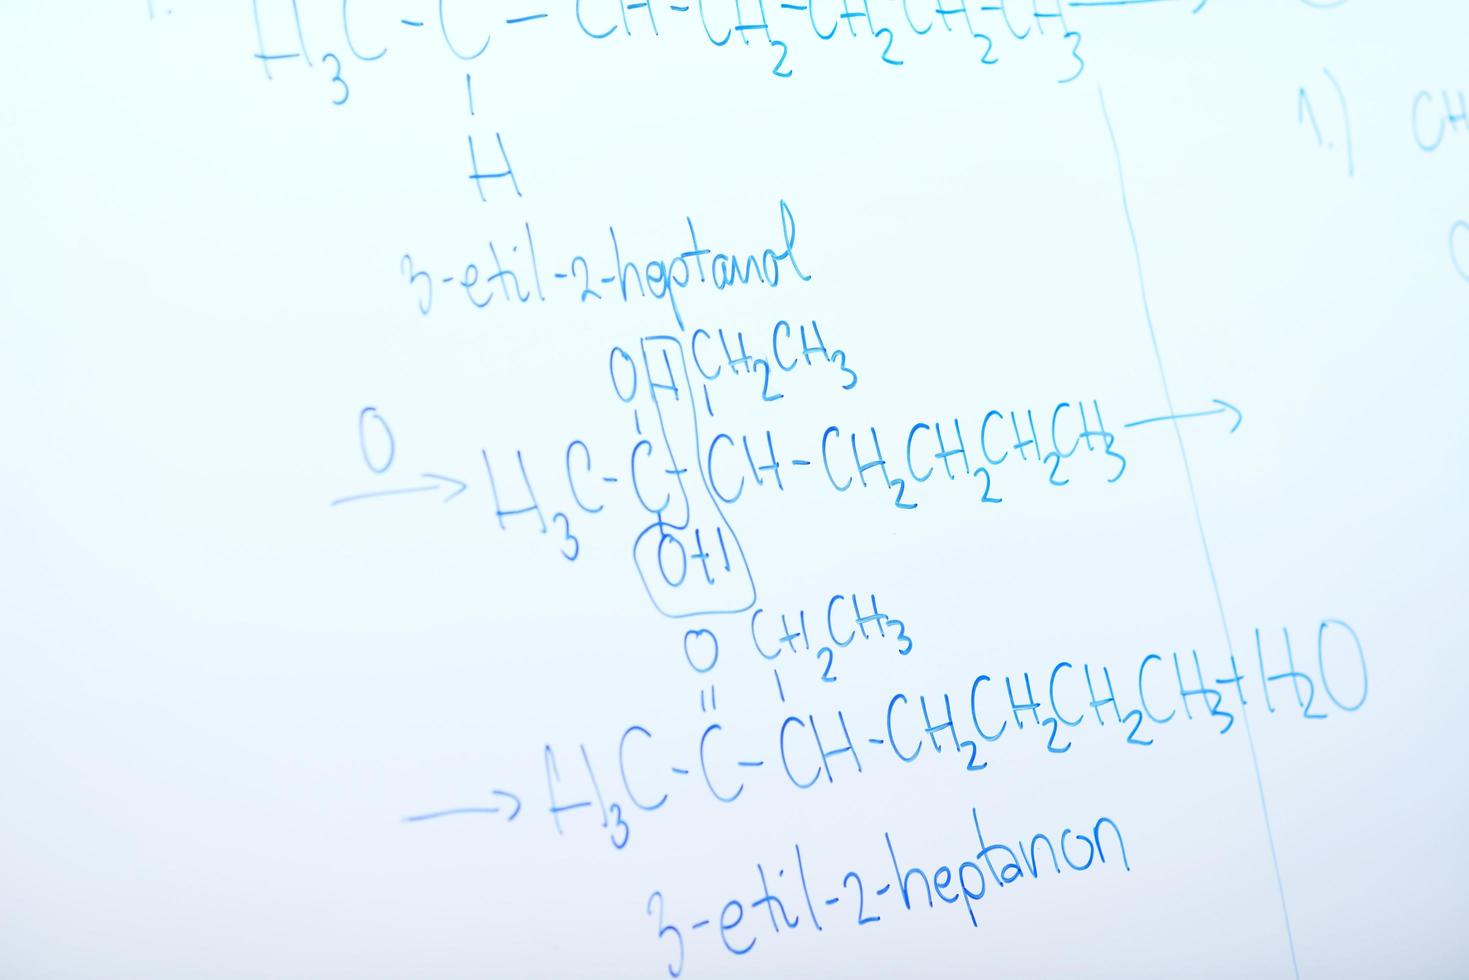 H3C-C-CH-CH2-CH2CH2CH3→
H
3-etil-2-heptanol
OH CH2CH3
O→ H3C-C-CH-CH2CH2CH2CH3→
OH
O CH2CH3
→ H3C-C-CH-CH2CH2CH2CH3+H2O
3-etil-2-heptanon
1.) CH